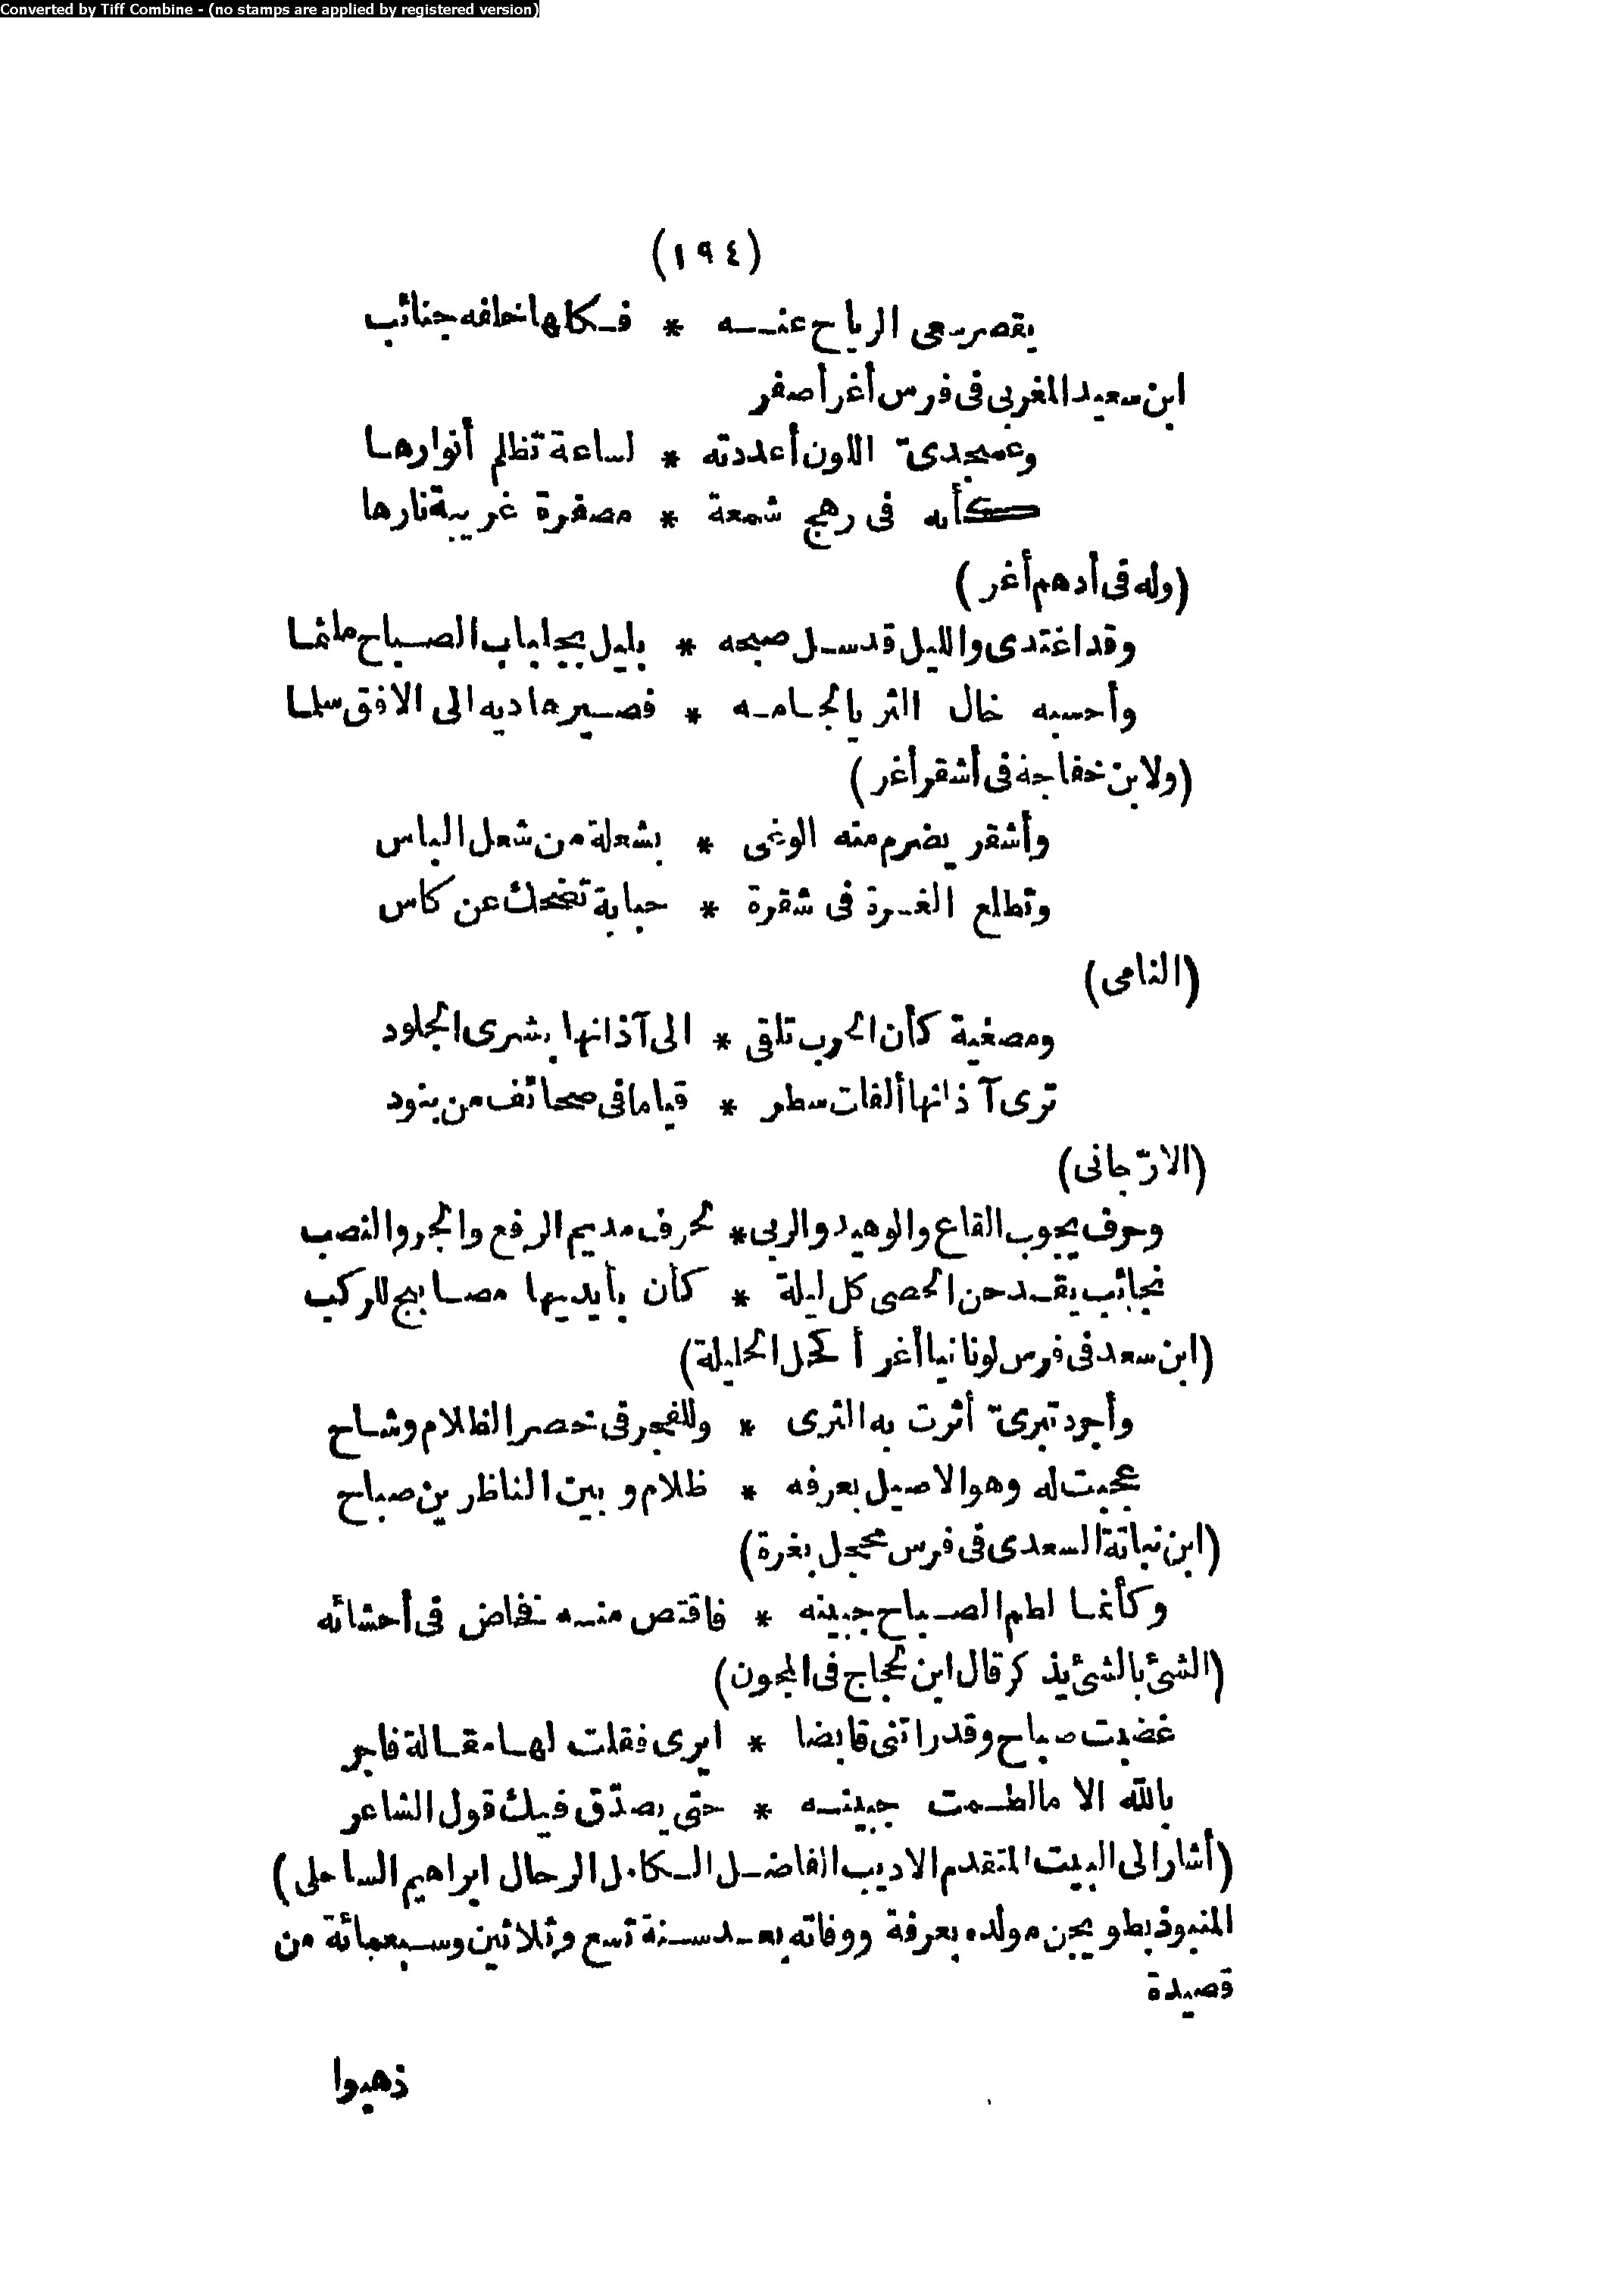 Converted by Tiff Combine - (no stamps are applied by registered version)
(١٩٤)
يقصر سعى الرياح عنه * فكلها خلفه جنائب
ابن سعيد المغربى فى فرس أغر أصفر
وعسجدىّ اللون أعددته * لساعة تظلم أنوارها
كأنه فى رهج شمعة * مصفرة غريبة نارها
(وله فى أدهم أغر)
وقد اغتدى والليل قد سل صبحه * بليل بجلباب الصباح ملثما
وأحسبه خال الثريا لجامه * فصير هاديه الى الافق سلما
(ولابن خفاجة فى أشقر أغر)
وأشقر يضرم منه الوغى * بشعلة من شعل الباس
وتطلع الغرة فى شقرة * حبابة تضحك عن كاس
(النامى)
ومصغية كأن الحرب تلقى * الى آذانها بشرى الجلود
ترى آذانها ألفات سطر * قياما فى صحائف من بنود
(الارّجانى)
وحرف يجوب القاع والوهيد والربى * لحرف مديم الرفع والجر والنصب
نجائب يقدحن الحصى كل ليلة * كأن بأيديها مصابيح للركب
(ابن سعد فى فرس لونانيا أغر أكحل الحليلة)
وأجرد تبرىّ أثرت به الثرى * وللفجر فى خصر الظلام وشاح
عجبت له وهو الاصيل بعرفه * ظلام وبين الناظرين صباح
(ابن نباتة السعدى فى فرس محجل بغرة)
وكأنما لطم الصباح جبينه * فاقتص منه فخاض فى أحشائه
(الشئ بالشئ يذكر قال ابن حجاج فى المجون)
غضبت صباح وقد رأتنى قابضا * ايرى فقلت لها مقالة فاجر
بالله الا مالطمت جبينه * حتى يصدّق فيك قول الشاعر
(أشار الى البيت المتقدم الاديب الفاضل الكامل الرحال ابراهيم الساحلى)
المنبوذ بطويجن مولده بعرفة ووفاته بعد سنة تسع وثلاثين وسبعمائة من
قصيدة
ذهبوا